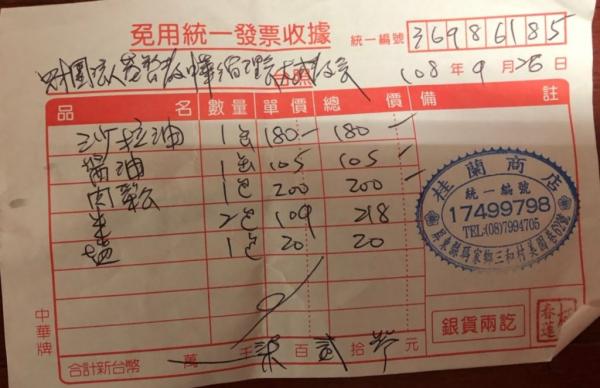 免用統一發票收據
統一編號 36986185
108年9月26日
品名 數量 單價 總價 備註
沙拉油 1包 180 180
醬油 1包 105 105
肉鬆 1包 200 200
米 2包 109 218
鹽 1包 20 20
桂蘭商店
統一編號
17499798
TEL:(08)7994705
屏東縣瑪家鄉三和村美園巷62號
銀貨兩訖
中華牌
合計新台幣 萬 千 柒 百 貳 拾 元